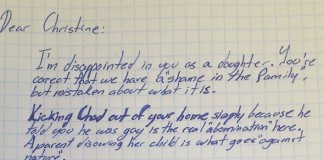 Dear Christine:
I'm disappointed in you as a daughter. You're
correct that we have a "shame in the family",
but mistaken about what it is.
Kicking Chad out of your home simply because he
told you he was gay is the real "abomination" here.
A parent disowning her child is what goes "against
nature".